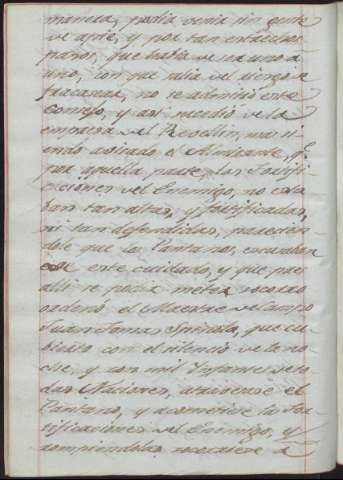 manera, podia venir sin gente
de apie, y por tan estrechos
pasos, que havia de ser uno à
uno, con que salia el riesgo à
fracasar, no se admitió este
consejo, y asi sucedió de la
empresa del Rebellin, mas si
endo avisado el Almirante, q.e
por aquella parte, las Fortifi
caciones del Enemigo, no esta
ban tan altas, y fortificadas,
ni tan defendidas, parecien
dole que los Pantanos, escusaban
este cuidado, y que por
alli se podia meter socorro
ordenó, el Maestre de Campo
Juan Tomas Spinola, que cu
bierto con el silencio de la no
che, y con mil Infantes de to
das Naciones, atravesase el
Pantano, y acometiese las For
tificaciones del Enemigo, y
rompiendolas socorriese à